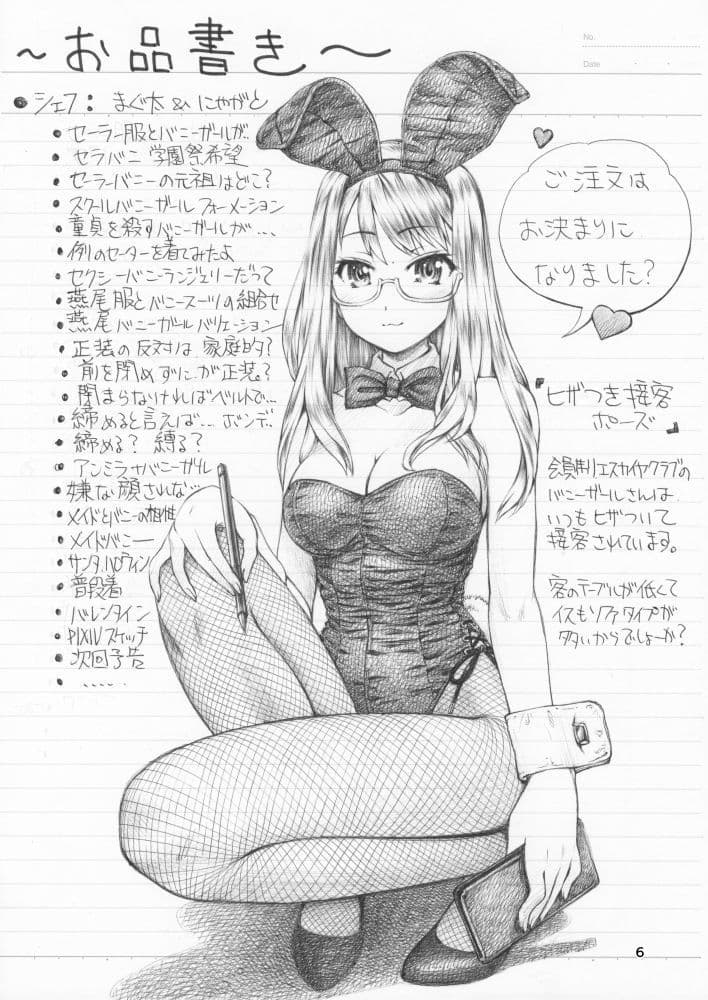 ～お品書き～
No.
Date
● シェフ： まぐ太 & にゃがと
● セーラー服とバニーガールが..
● セラバニ 学園祭希望
● セーラーバニーの元祖はどこ？
● スクールバニーガールフォーメーション
● 童貞を殺すバニーガールが...
● 例のセーターを着てみたよ
● セクシーバニーランジェリーだって
● 燕尾服とバニースーツの組合せ
● 燕尾バニーガールバリエーション
● 正装の反対は 家庭的？
● 前を閉めずにが正装？
● 閉まらなければベルトで...
● 締めると言えば... ボンデ..
● 締める？ 縛る？
● アンミラサバニーガール
● 嫌な顔されな...
● メイドとバニーの相性
● メイドバニー
● サンタ,ハロウィン
● 普段着
● バレンタイン
● PIXIVスケッチ
● 次回予告
● .....
ご注文は
お決まりに
なりました？
『ヒザつき接客
ポーズ』
会員制エスカイヤクラブの
バニーガールさんは
いつもヒザついて
接客されています。
客のテーブルが低くて
イスもソファタイプが
多いからでしょーか？
6